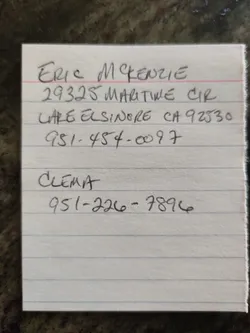 ERIC MCKENZIE
29325 MARITIME CIR
LAKE ELSINORE CA 92530
951-454-0097
CLEMA
951-226-7896